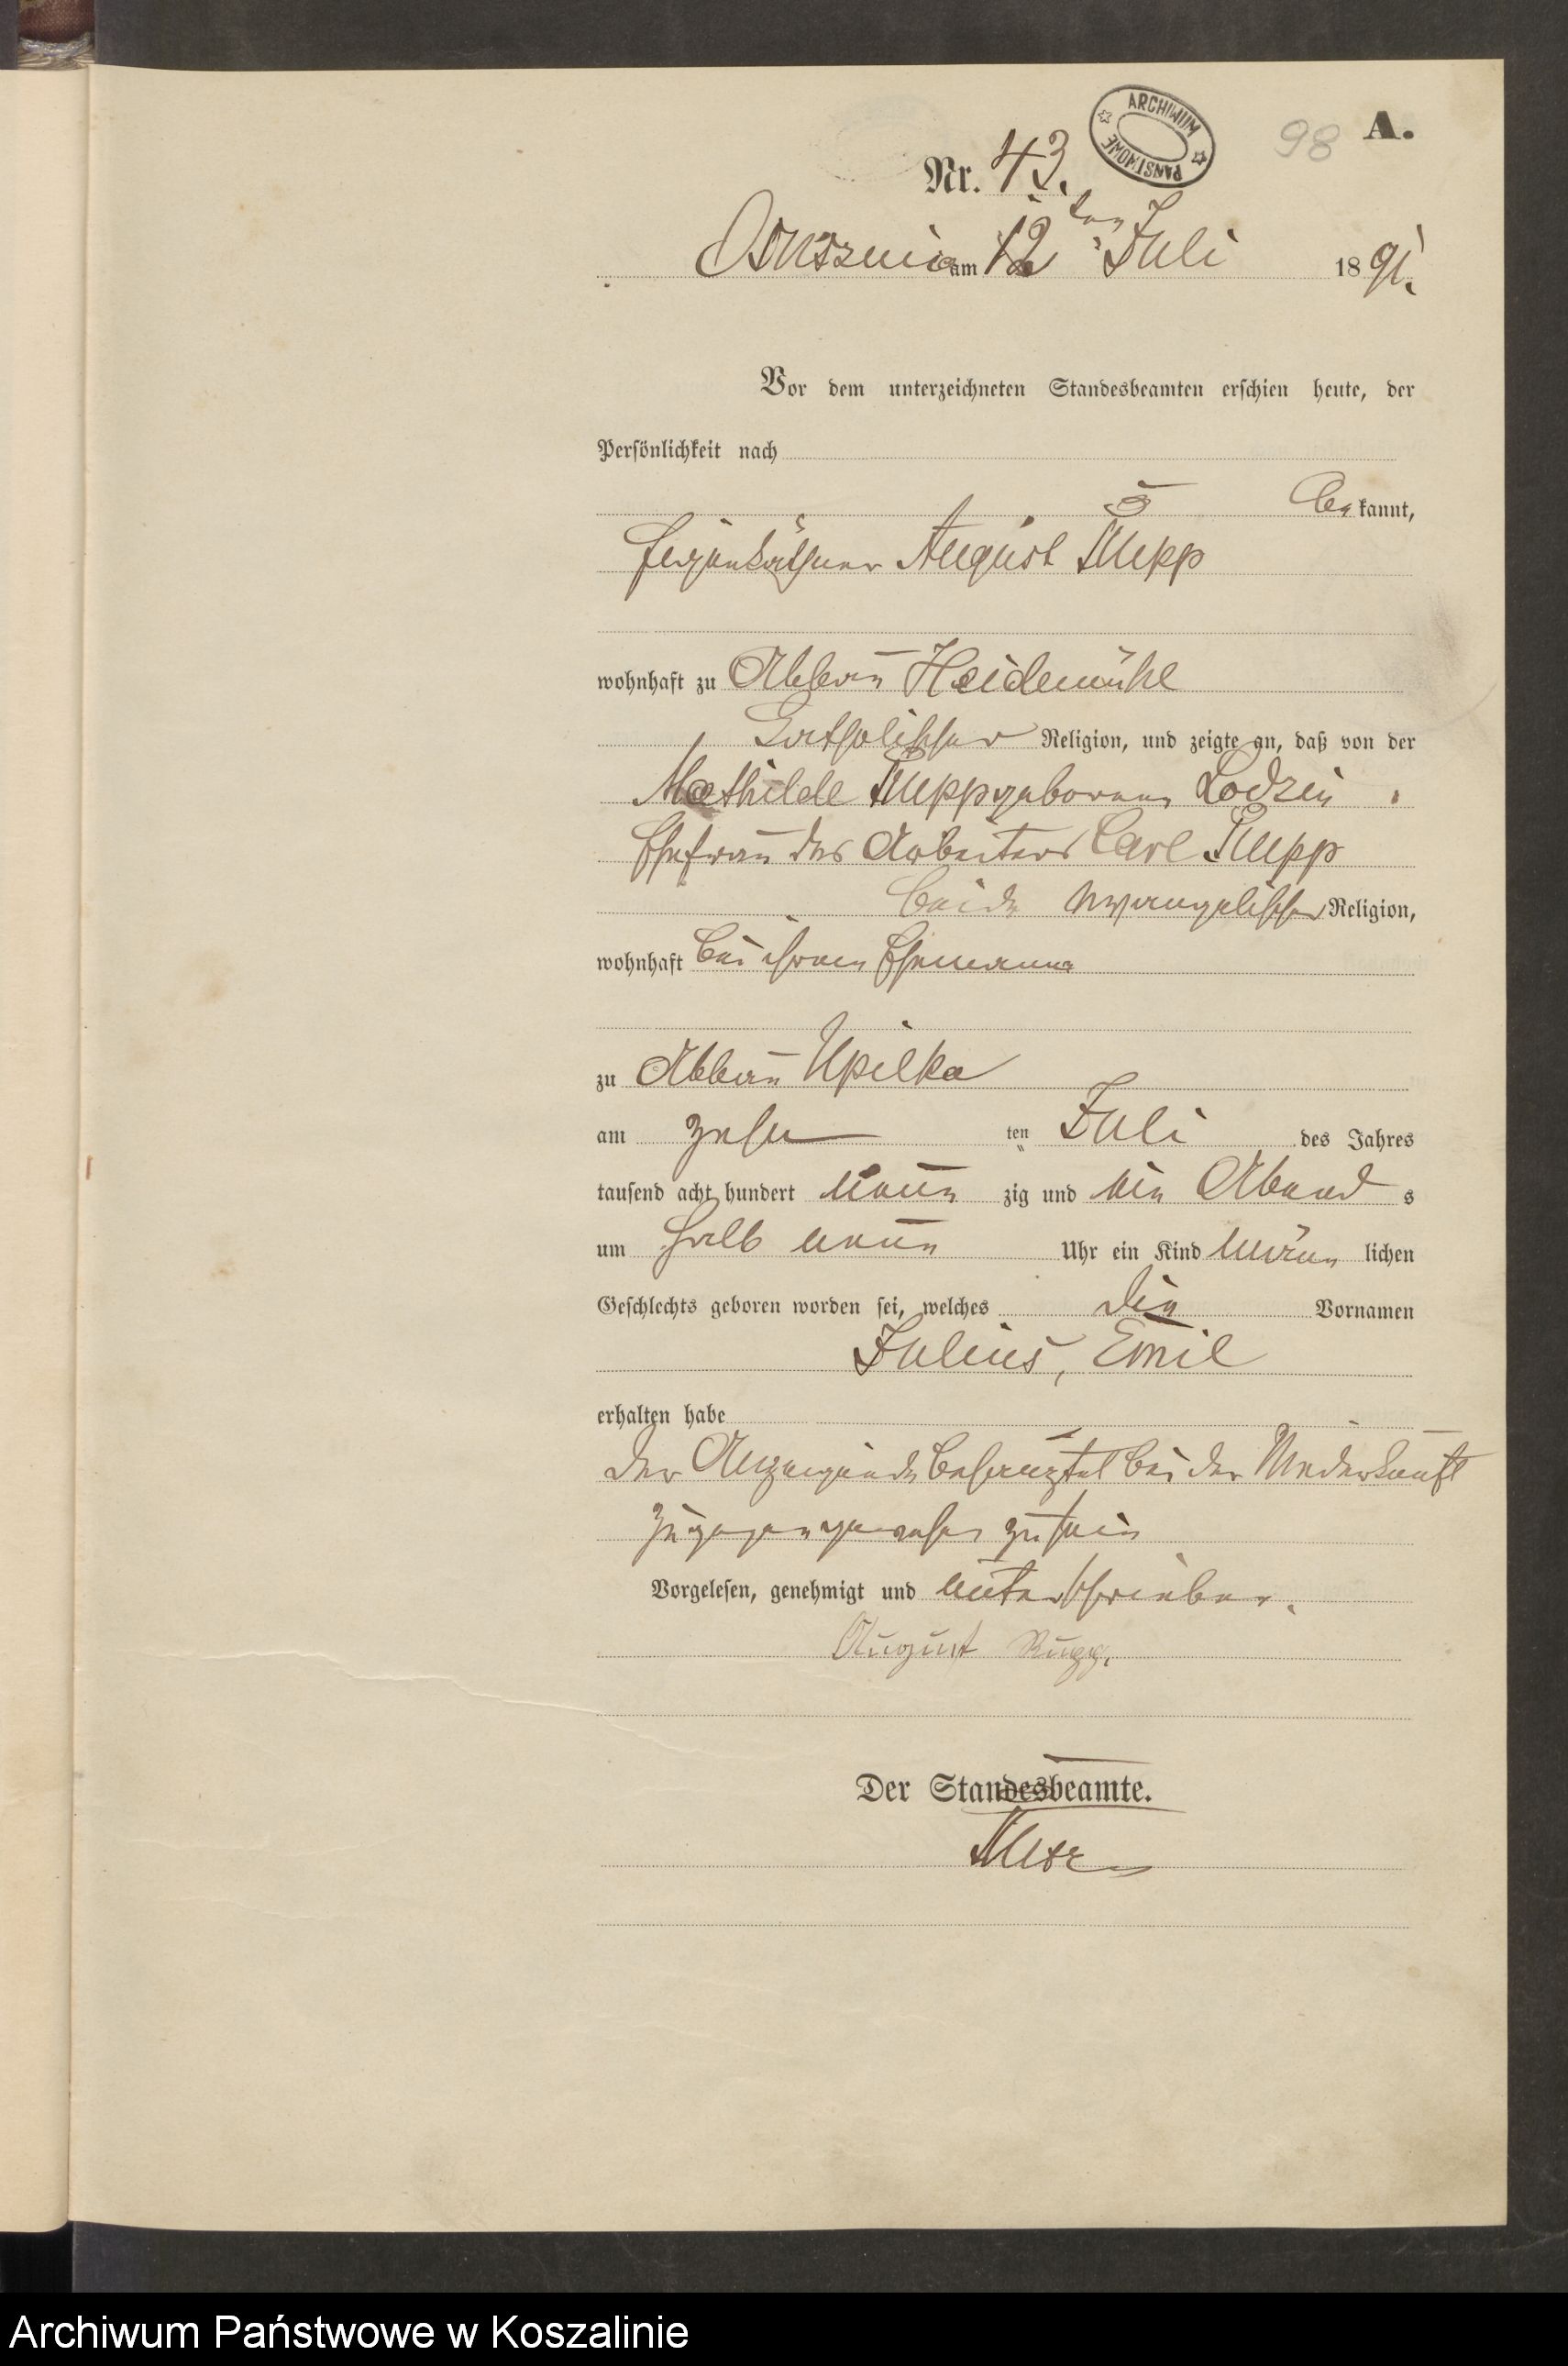 ARCHIWUM PAŃSTWOWE
98 A.
Nr. 43.
Borzyskowo am 12 ten Juli 1891.
Vor dem unterzeichneten Standesbeamten erschien heute, der
Persönlichkeit nach
be kannt,
Eigenkäthner August Rupp
wohnhaft zu Abbau Heidemühl
katholischer Religion, und zeigte an, daß von der
Mathilde Rupp geborenen Lodzin
Ehefrau des Arbeiters Carl Rupp
beide evangelischer Religion,
wohnhaft bei ihrem Ehemanne
zu Abbau Upilka
am zehn ten Juli des Jahres
tausend acht hundert neun zig und ein Abend s
um halb neun Uhr ein Kind männ lichen
Geschlechts geboren worden sei, welches die Vornamen
Julius, Emil
erhalten habe
der Anzeigende bescheinigte bei der Niederkunft
zugegen gewesen zu sein
Vorgelesen, genehmigt und unterschrieben.
August Rupp.
Der Standesbeamte.
Archiwum Państwowe w Koszalinie